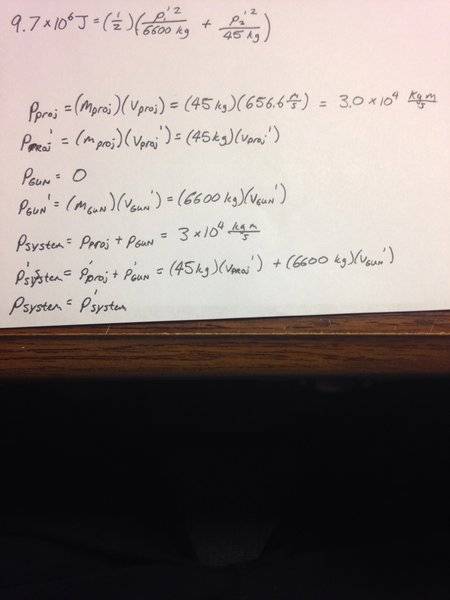 9.7×10⁶ J = (1/2)(p₁'²/6600 kg + p₂'²/45 kg)
Pproj = (mproj)(vproj) = (45 kg)(656.6 m/s) = 3.0×10⁴ kg m/s
Pproj' = (mproj)(vproj') = (45 kg)(vproj')
PGUN = 0
PGUN' = (mGUN)(vGUN') = (6600 kg)(vGUN')
Psystem = Pproj + PGUN = 3×10⁴ kg m/s
P'system = P'proj + P'GUN = (45 kg)(vPROJ') + (6600 kg)(vGUN')
Psystem = P'system